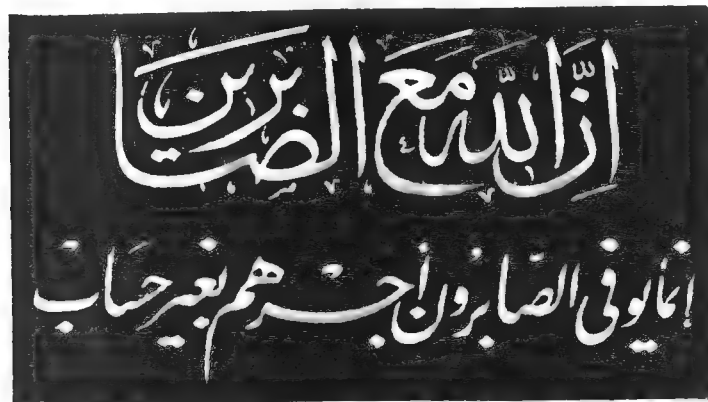 إنّ الله مع الصّابرين
إنما يوفى الصابرون أجرهم بغير حساب